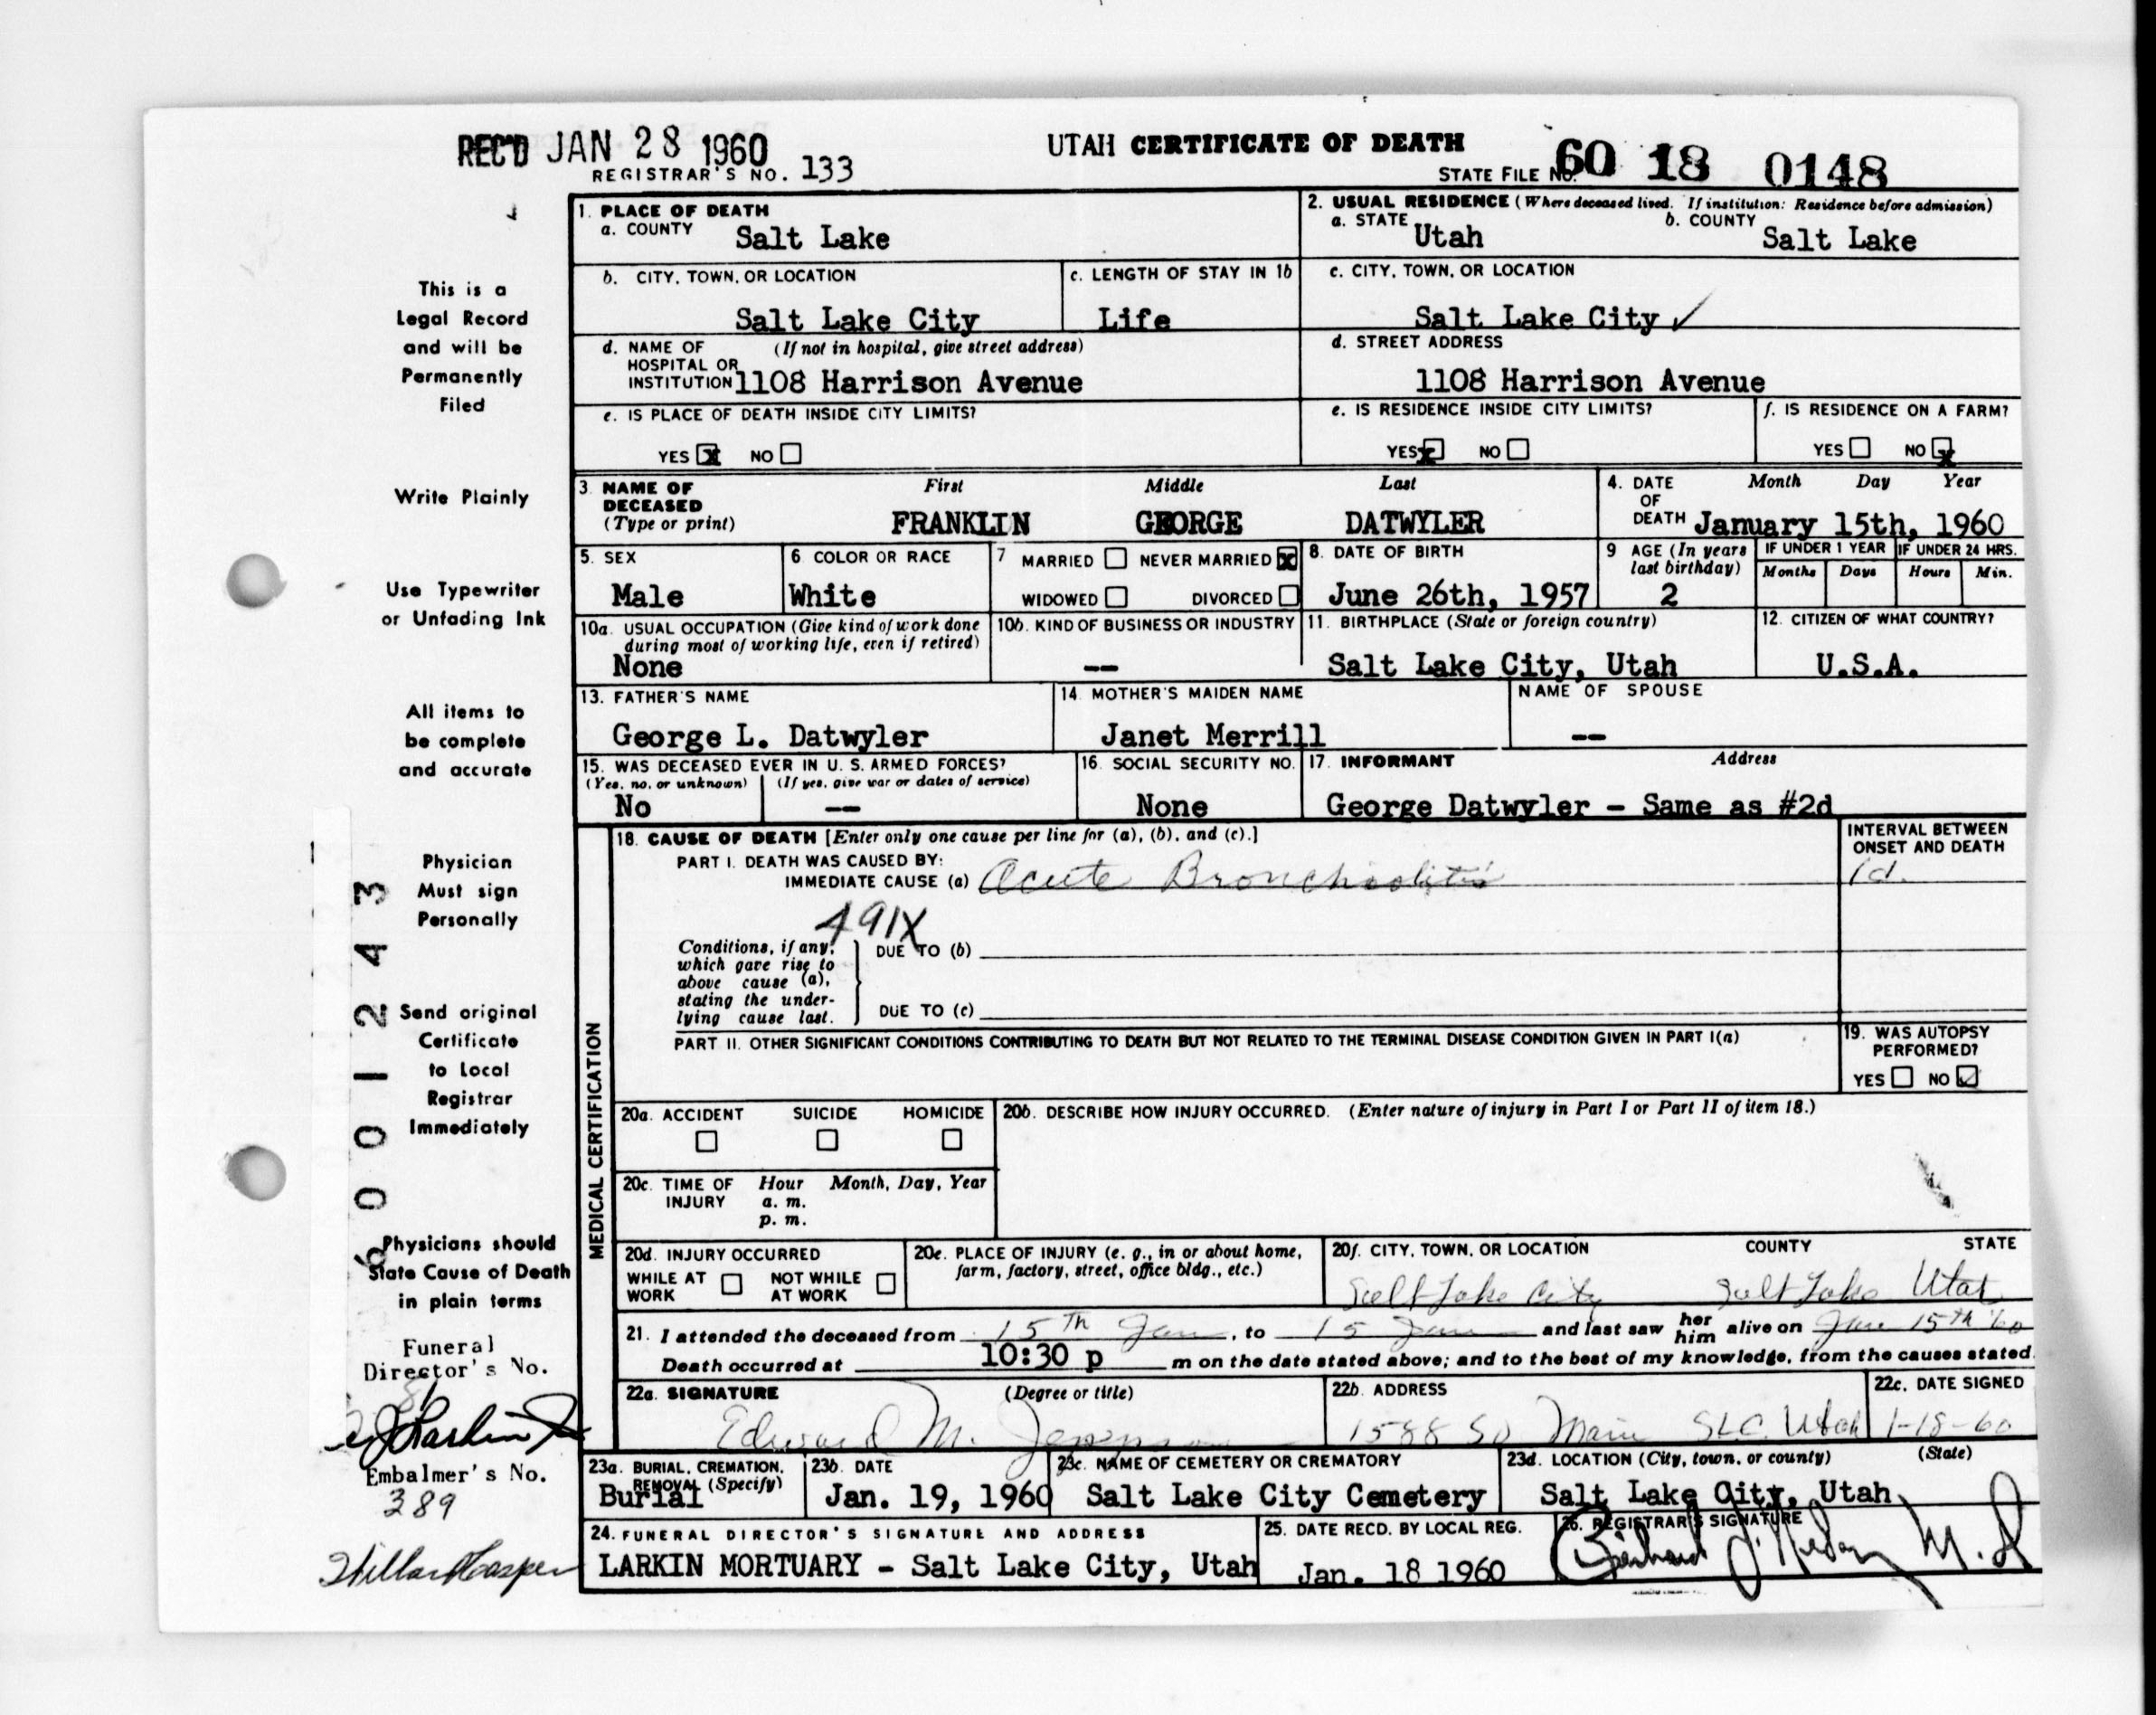 REC'D JAN 28 1960
REGISTRAR'S NO. 133
UTAH CERTIFICATE OF DEATH
STATE FILE NO. 60 18 0148
This is a
Legal Record
and will be
Permanently
Filed
Write Plainly
Use Typewriter
or Unfading Ink
All items to
be complete
and accurate
Physician
Must sign
Personally
Send original
Certificate
to Local
Registrar
Immediately
Physicians should
State Cause of Death
in plain terms
Funeral
Director's No.
81
Embalmer's No.
389
6001243
1. PLACE OF DEATH
a. COUNTY Salt Lake
2. USUAL RESIDENCE (Where deceased lived. If institution: Residence before admission)
a. STATE Utah b. COUNTY Salt Lake
b. CITY, TOWN, OR LOCATION Salt Lake City
c. LENGTH OF STAY IN 1b Life
c. CITY, TOWN, OR LOCATION Salt Lake City ✓
d. NAME OF HOSPITAL OR INSTITUTION (If not in hospital, give street address) 1108 Harrison Avenue
d. STREET ADDRESS 1108 Harrison Avenue
e. IS PLACE OF DEATH INSIDE CITY LIMITS?
YES X NO
e. IS RESIDENCE INSIDE CITY LIMITS?
YES X NO
f. IS RESIDENCE ON A FARM?
YES NO X
3. NAME OF DECEASED (Type or print)
First Middle Last
FRANKLIN GEORGE DATWYLER
4. DATE OF DEATH Month Day Year
January 15th, 1960
5. SEX Male
6 COLOR OR RACE White
7 MARRIED NEVER MARRIED X
WIDOWED DIVORCED
8. DATE OF BIRTH June 26th, 1957
9 AGE (In years last birthday) 2
IF UNDER 1 YEAR Months Days
IF UNDER 24 HRS. Hours Min.
10a. USUAL OCCUPATION (Give kind of work done during most of working life, even if retired) None
10b. KIND OF BUSINESS OR INDUSTRY --
11. BIRTHPLACE (State or foreign country) Salt Lake City, Utah
12. CITIZEN OF WHAT COUNTRY? U.S.A.
13. FATHER'S NAME George L. Datwyler
14. MOTHER'S MAIDEN NAME Janet Merrill
NAME OF SPOUSE --
15. WAS DECEASED EVER IN U. S. ARMED FORCES?
(Yes, no, or unknown) (If yes, give war or dates of service)
No --
16. SOCIAL SECURITY NO. None
17. INFORMANT Address
George Datwyler - Same as #2d
MEDICAL CERTIFICATION
18. CAUSE OF DEATH [Enter only one cause per line for (a), (b), and (c).]
INTERVAL BETWEEN ONSET AND DEATH
PART I. DEATH WAS CAUSED BY:
IMMEDIATE CAUSE (a) Acute Bronchiolitis 1d.
491X
Conditions, if any, which gave rise to above cause (a), stating the underlying cause last.
DUE TO (b)
DUE TO (c)
PART II. OTHER SIGNIFICANT CONDITIONS CONTRIBUTING TO DEATH BUT NOT RELATED TO THE TERMINAL DISEASE CONDITION GIVEN IN PART I(a)
19. WAS AUTOPSY PERFORMED?
YES NO ✓
20a. ACCIDENT SUICIDE HOMICIDE
20b. DESCRIBE HOW INJURY OCCURRED. (Enter nature of injury in Part I or Part II of item 18.)
20c. TIME OF INJURY Hour Month, Day, Year
a. m.
p. m.
20d. INJURY OCCURRED
WHILE AT WORK NOT WHILE AT WORK
20e. PLACE OF INJURY (e. g., in or about home, farm, factory, street, office bldg., etc.)
20f. CITY, TOWN, OR LOCATION COUNTY STATE
Salt Lake City Salt Lake Utah
21. I attended the deceased from 15th Jan, to 15 Jan and last saw her him alive on Jan 15th '60
Death occurred at 10:30 p m on the date stated above; and to the best of my knowledge, from the causes stated.
22a. SIGNATURE (Degree or title)
Edward M.
22b. ADDRESS 1588 So Main SLC. Utah
22c. DATE SIGNED 1-18-60
23a. BURIAL, CREMATION, REMOVAL (Specify) Burial
23b. DATE Jan. 19, 1960
23c. NAME OF CEMETERY OR CREMATORY Salt Lake City Cemetery
23d. LOCATION (City, town, or county) (State)
Salt Lake City, Utah
24. FUNERAL DIRECTOR'S SIGNATURE AND ADDRESS
LARKIN MORTUARY - Salt Lake City, Utah
25. DATE RECD. BY LOCAL REG. Jan. 18 1960
26. REGISTRAR'S SIGNATURE
M.D